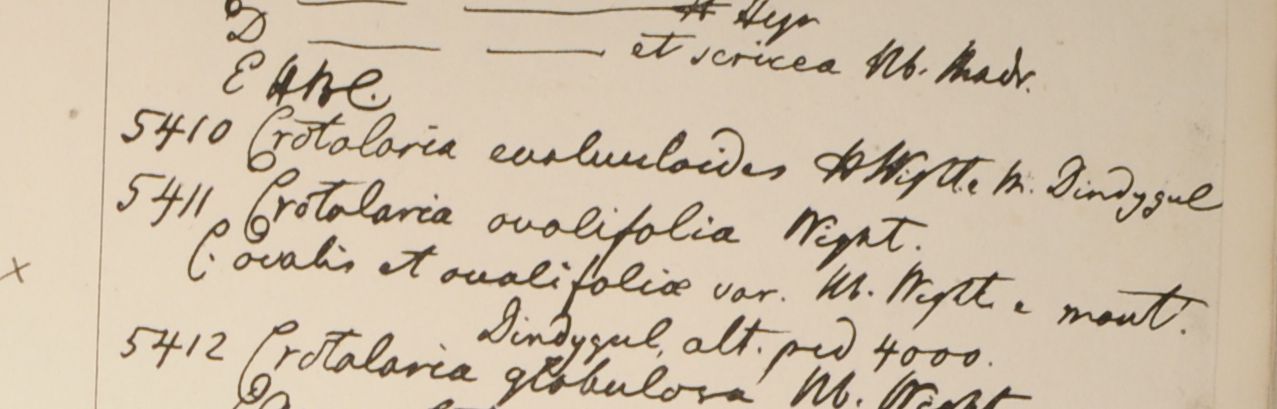 D — — H Heyn
— — et sericea Hb. Madr.
E HBC.
5410 Crotalaria evolvuloides H Wight e M. Dindygul
5411 Crotalaria ovalifolia Wight.
C. ovalis et ovalifoliæ var. Hb. Wight e mont.
Dindygul, alt. ped 4000.
5412 Crotalaria globulosa Hb. Wight